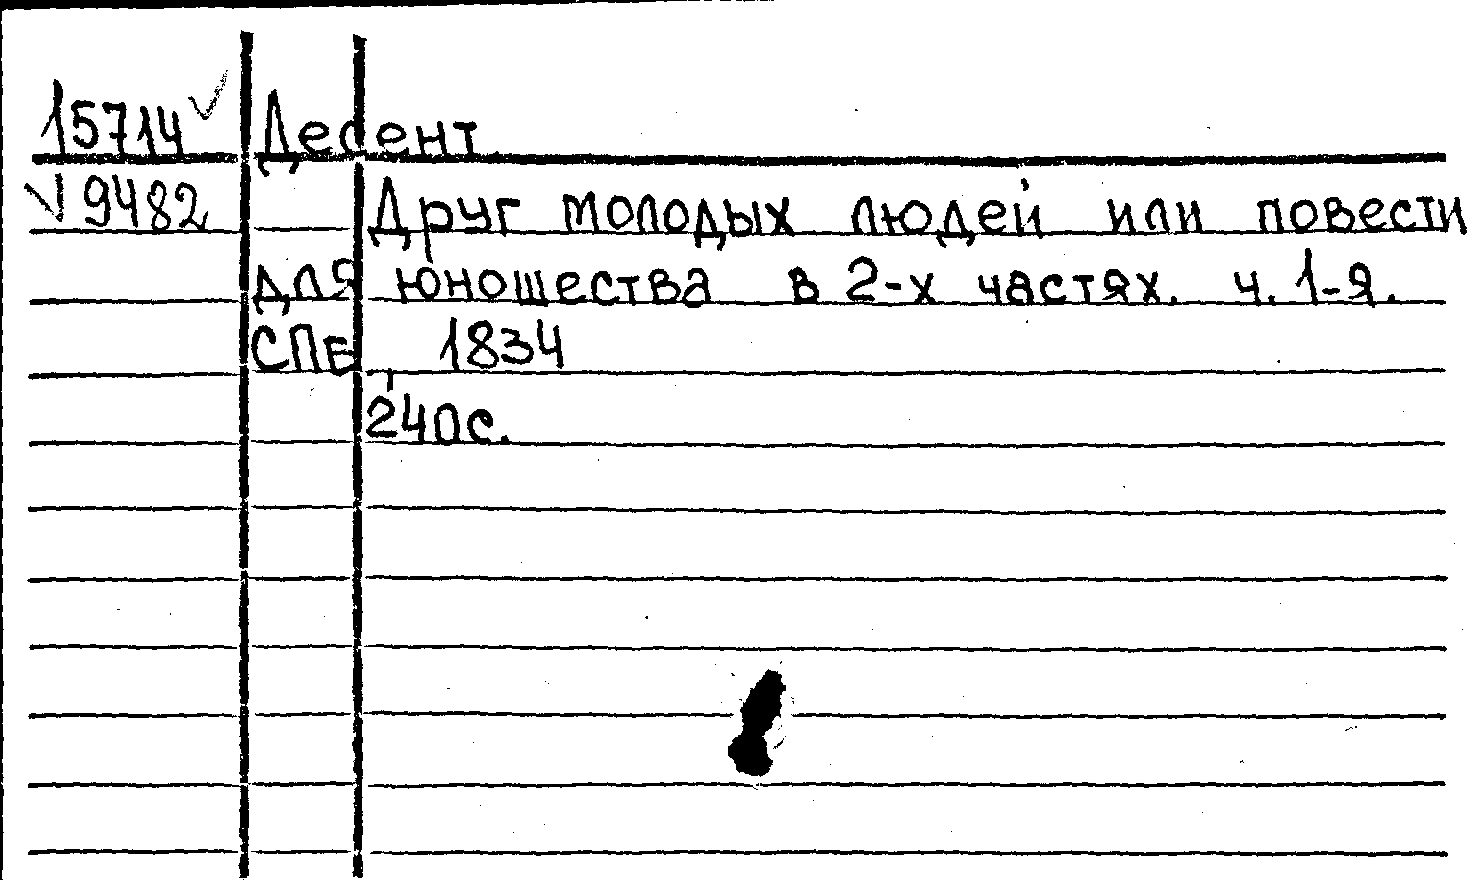 15714 Десент
9482 Друг молодых людей или повести
для юношества в 2-х частях. ч. 1-я.
СПБ, 1834
240с.